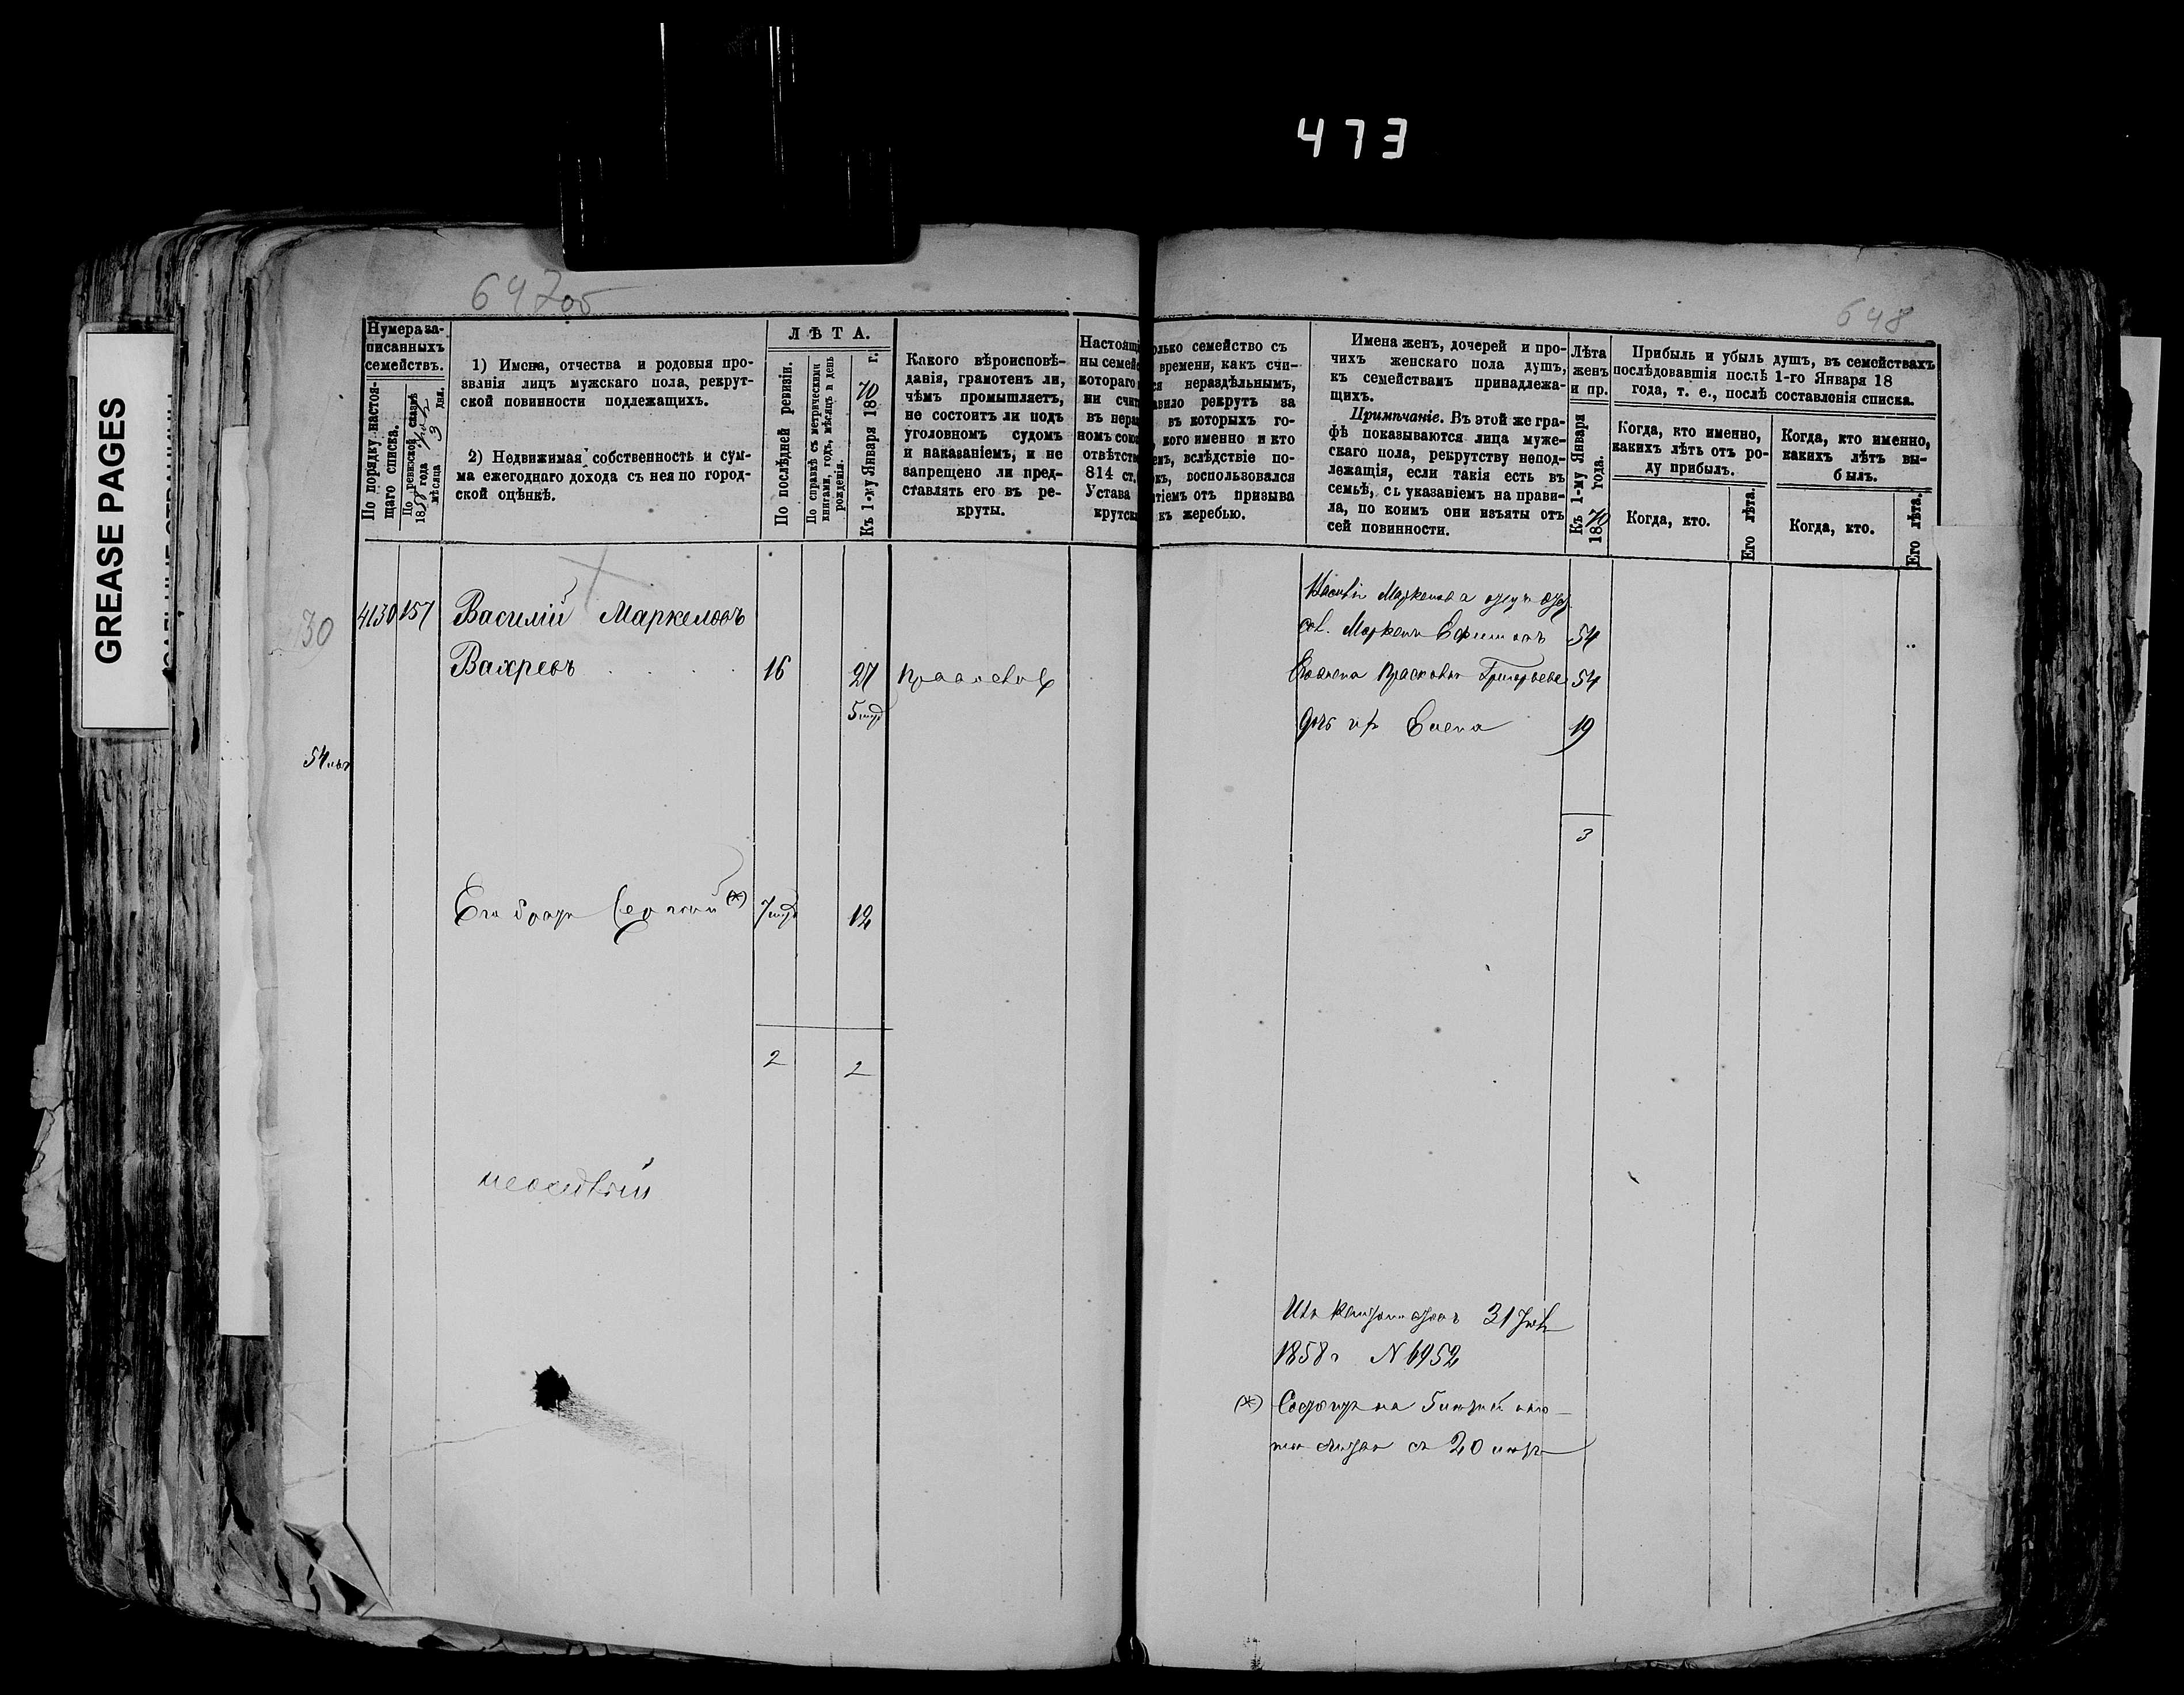 473
GREASE PAGES
647об
648
Нумера за-
писанныхъ
семействъ.
По порядку настоя-
щаго списка.
По ревизской сказкѣ
1858 года
мѣсяца 3 дня.
1) Имена, отчества и родовыя про-
званія лицъ мужскаго пола, рекрут-
ской повинности подлежащихъ.
2) Недвижимая собственность и сум-
ма ежегоднаго дохода съ нея по город-
ской оцѣнкѣ.
ЛѢТА.
По послѣдней ревизіи.
По справкѣ съ метрическими
книгами, годъ, мѣсяцъ и день
рожденія.
Къ 1-му Января 1870 г.
Какого вѣроисповѣ-
данія, грамотенъ ли,
чѣмъ промышляетъ,
не состоитъ ли подъ
уголовномъ судомъ
и наказаніемъ, и не
запрещено ли пред-
ставлять его въ ре-
круты.
Настоящ
ны семей
котораго
ни счит
въ нера
номъ сою
отвѣтств
814 ст.
Устава
крутск
олько семейство съ
времени, какъ счи-
ся нераздѣльнымъ,
авило рекрутъ за
въ которыхъ го-
кого именно и кто
емъ, вслѣдствіе по-
къ, воспользовался
тіемъ отъ призыва
къ жеребью.
Имена женъ, дочерей и про-
чихъ женскаго пола душъ,
къ семействамъ принадлежа-
щихъ.
Примѣчаніе. Въ этой же гра-
фѣ показываются лица муже-
скаго пола, рекрутству непод-
лежащія, если такія есть въ
семьѣ, съ указаніемъ на прави-
ла, по коимъ они изъяты отъ
сей повинности.
Лѣта
женъ
и пр.
Къ 1-му Января
1870 года.
Прибыль и убыль душъ, въ семействахъ
послѣдовавшія послѣ 1-го Января 18
года, т. е., послѣ составленія списка.
Когда, кто именно,
какихъ лѣтъ отъ ро-
ду прибылъ.
Когда, кто именно,
какихъ лѣтъ вы-
былъ.
Когда, кто.
Его лѣта.
Когда, кто.
Его лѣта.
30
4130 157 Василій Маркеловъ
Вахревъ 16 27
5
54
Его братъ 7 12
2 2
Василія Маркелова отецъ
Маркелъ Ефимовъ 54
Его жена Прасковья Григорьева 54
дочь их Елена 19
3
31
1858 г N 6952
(*) Состоитъ на
съ 20